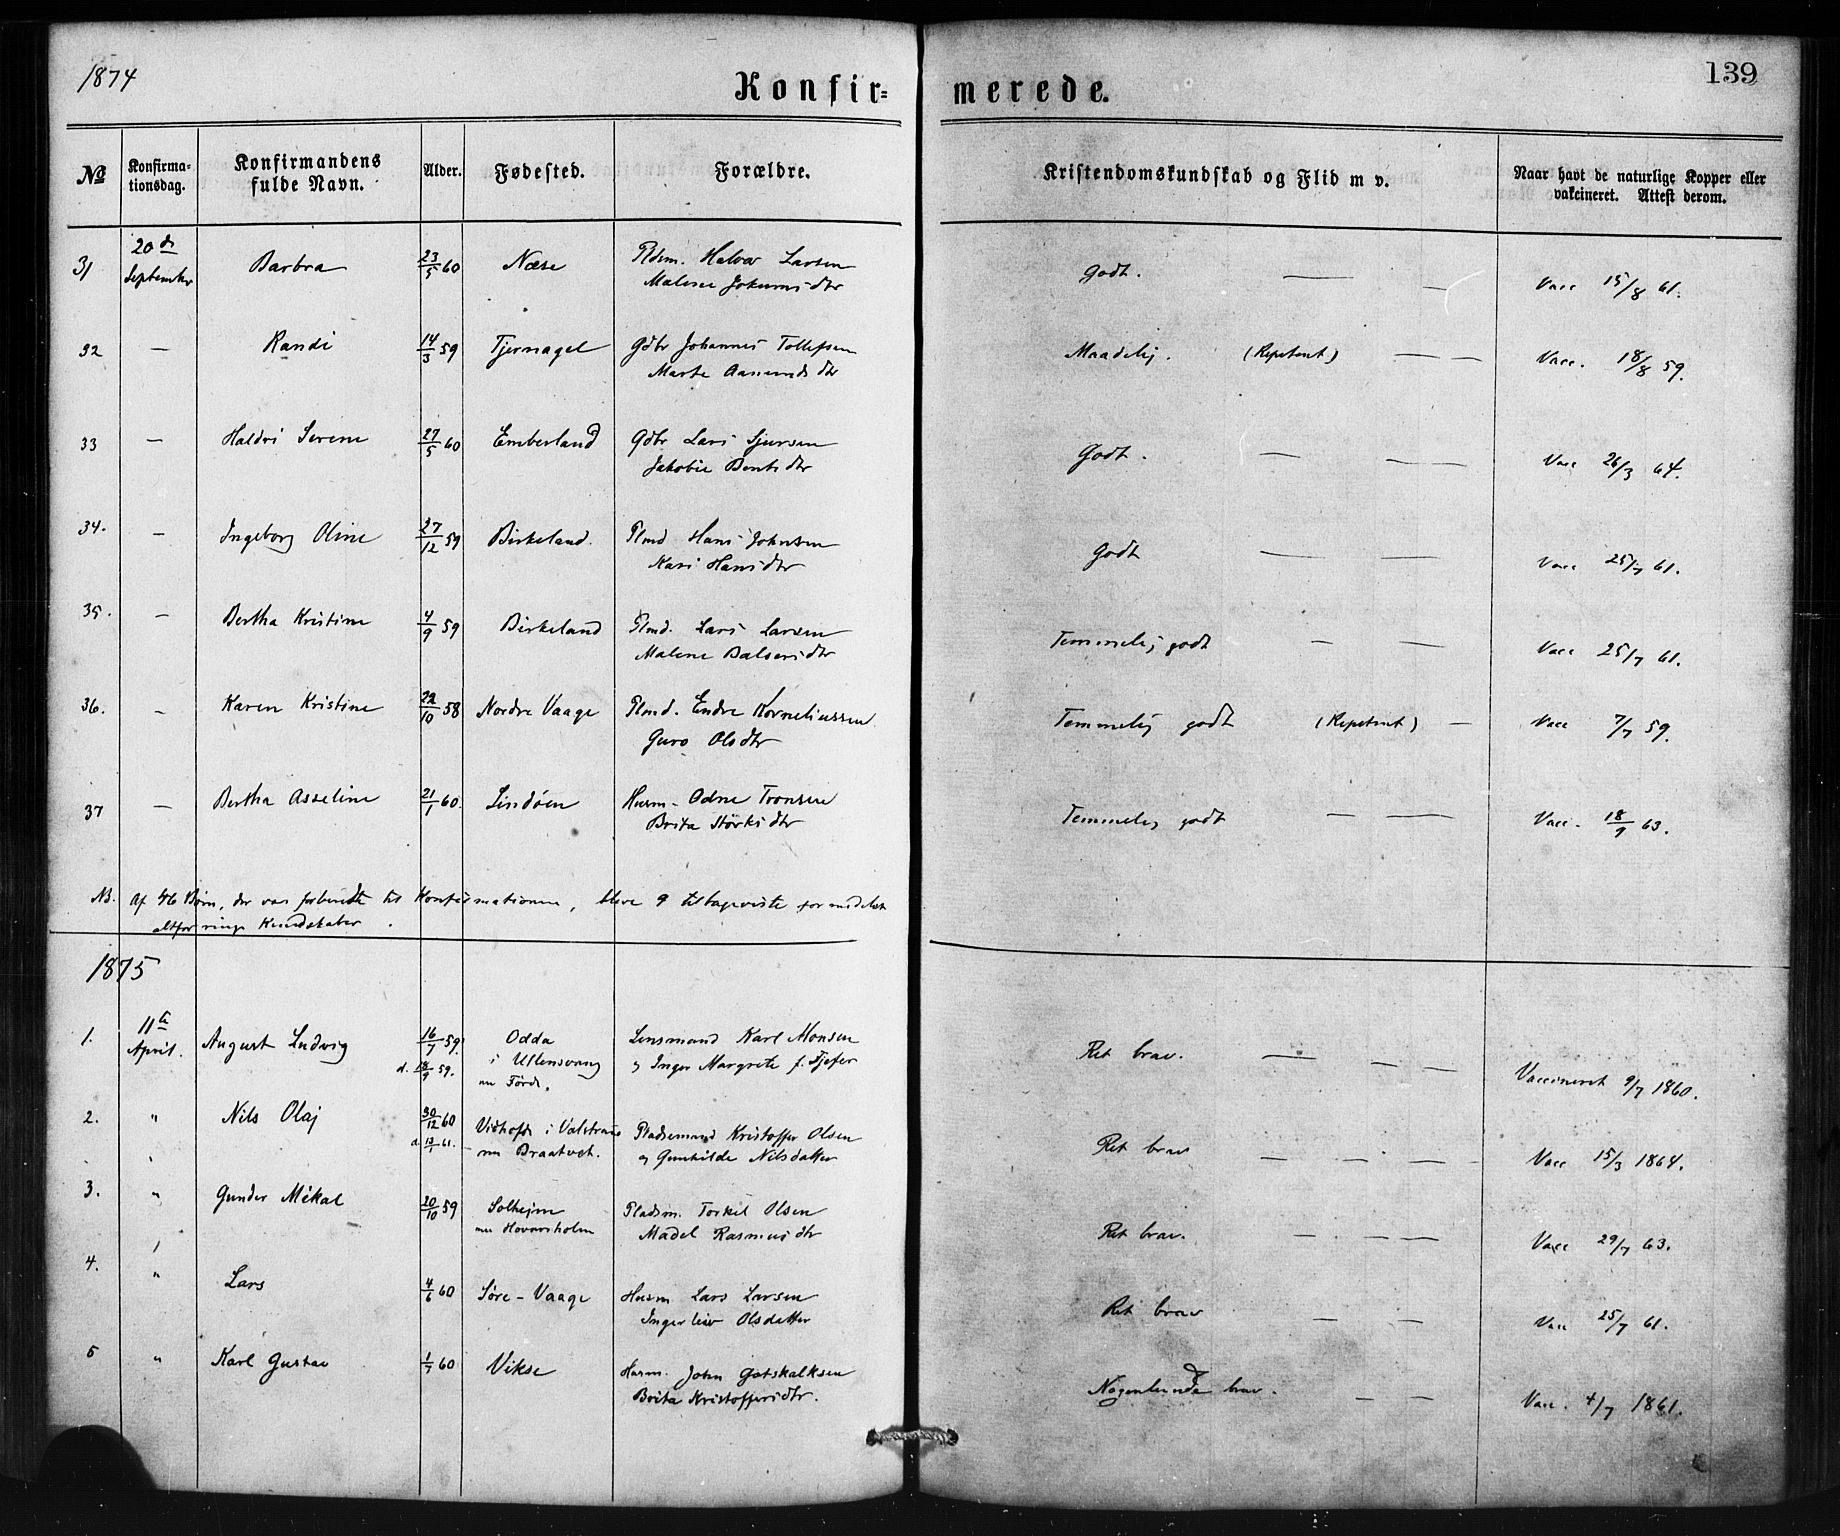 1874
Konfir=
merede.
139
No
Konfirma-
tionsdag.
Konfirmandens
fulde Navn.
Alder.
Fødested.
Forældre.
Kristendomskundskab og Flid m v.
Naar havt de naturlige Kopper eller
vakcineret. Attest derom.
31 20de September Barbra 23/5 60 Næse Pldsm. Halvor Larsen
Malene Jokumsdtr
Godt. — — Vacc 15/8 61.
32 — Randi 14/3 59 Tjernagel Gdbr Johannes Tollefsen
Marte Aamundsdtr
Maadelig. (Repetent) — — Vacc. 18/8 59.
33 — Haldri Serene 27/5 60 Emberland Gdbr Lars Sjursen
Jakobie Bentsdtr
Godt. — — — Vacc 26/3 64.
34. — Ingeborg Oline 27/12 59 Birkeland. Plmd Hans Johnsen
Kari Hansdtr
Godt — — Vacc 25/7 61.
35. — Bertha Kristine 4/9 59 Birkeland Plmd. Lars Larsen
Malene Balsersdtr
Temmelig godt — — Vacc 25/7 61.
36. — Karen Kristine 22/10 58 Nordre Vaage Plmd. Endre Korneliussen
Guro Olsdtr
Temmelig godt (Repetent) — Vacc 7/7 59.
37 — Bertha Asseline 21/1 60. Lindøen Husm. Odne Tronsen
Brita Størksdtr
Temmelig godt — — — Vacc. 18/9 63.
NB. Af 46 Børn, der var forberedte til Konfirmationen, bleve 9 tilbageviste formedelst
altfor ringe Kundskaber.
1875
1. 11te April. August Ludvig 16/7 59. Odda Lensmand Karl Monsen
d. 18/9 59. i Ullensvang og Inger Margrete f. Fjefer
nu Førde.
Ret brav. — — — Vaccineret 9/7 1860.
2. " Nils Olaj 30/12 60 i Valstrand Pladsemand Kristoffer Olsen
d. 13/1 61. nu Braatvet. og Gunhilde Nilsdatter
Ret brav — — — Vacc 15/3 1864.
3. " Gunder Mikal 20/10 59 Solheim Pladsm. Torkel Olsen
nu Hovarsholm Madel Rasmusdtr
Ret brav. — — — Vacc 29/7 63.
4. " Lars 4/6 60 Søre-Vaage Husm Lars Larsen
Ingerleiv Olsdatter
Ret brav — — Vacc 25/7 61.
5 " Karl Gustav 1/7 60 Vikse Husm. John Gotskalksen
Brita Kristoffersdtr.
Nogenlunde brav. — — Vacc. 4/7 1861.